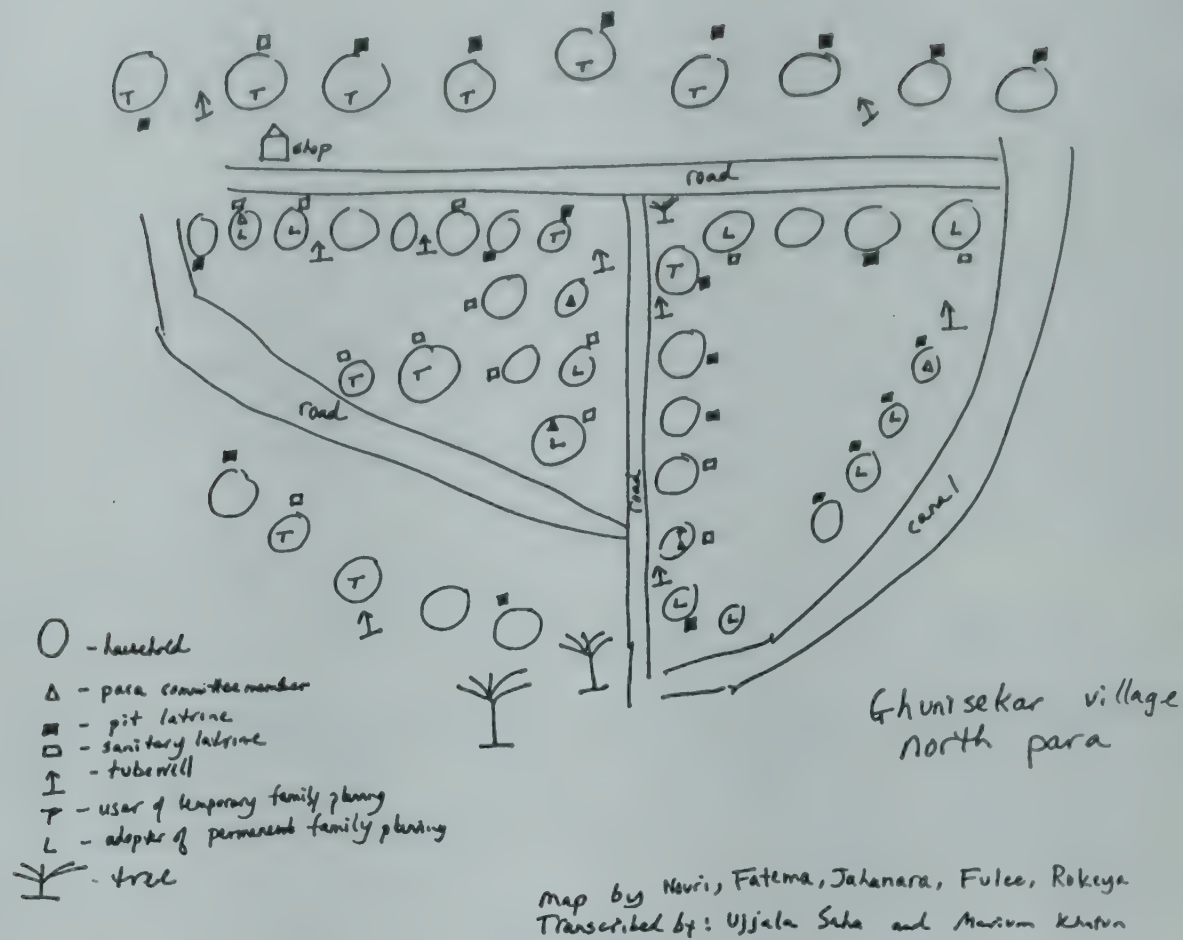 T T T T T T
shop
road
L L T L L
T
T T L
road
L
L
L
road
T
canal
T
L L
- household
- para committee member
- pit latrine
- sanitary latrine
- tubewell
T - user of temporary family planning
L - adopter of permanent family planning
- tree
Ghunisekar village
north para
Map by Nouri, Fatema, Jahanara, Fulee, Rokeya
Transcribed by: Ujjala Saha and Marium Khatun